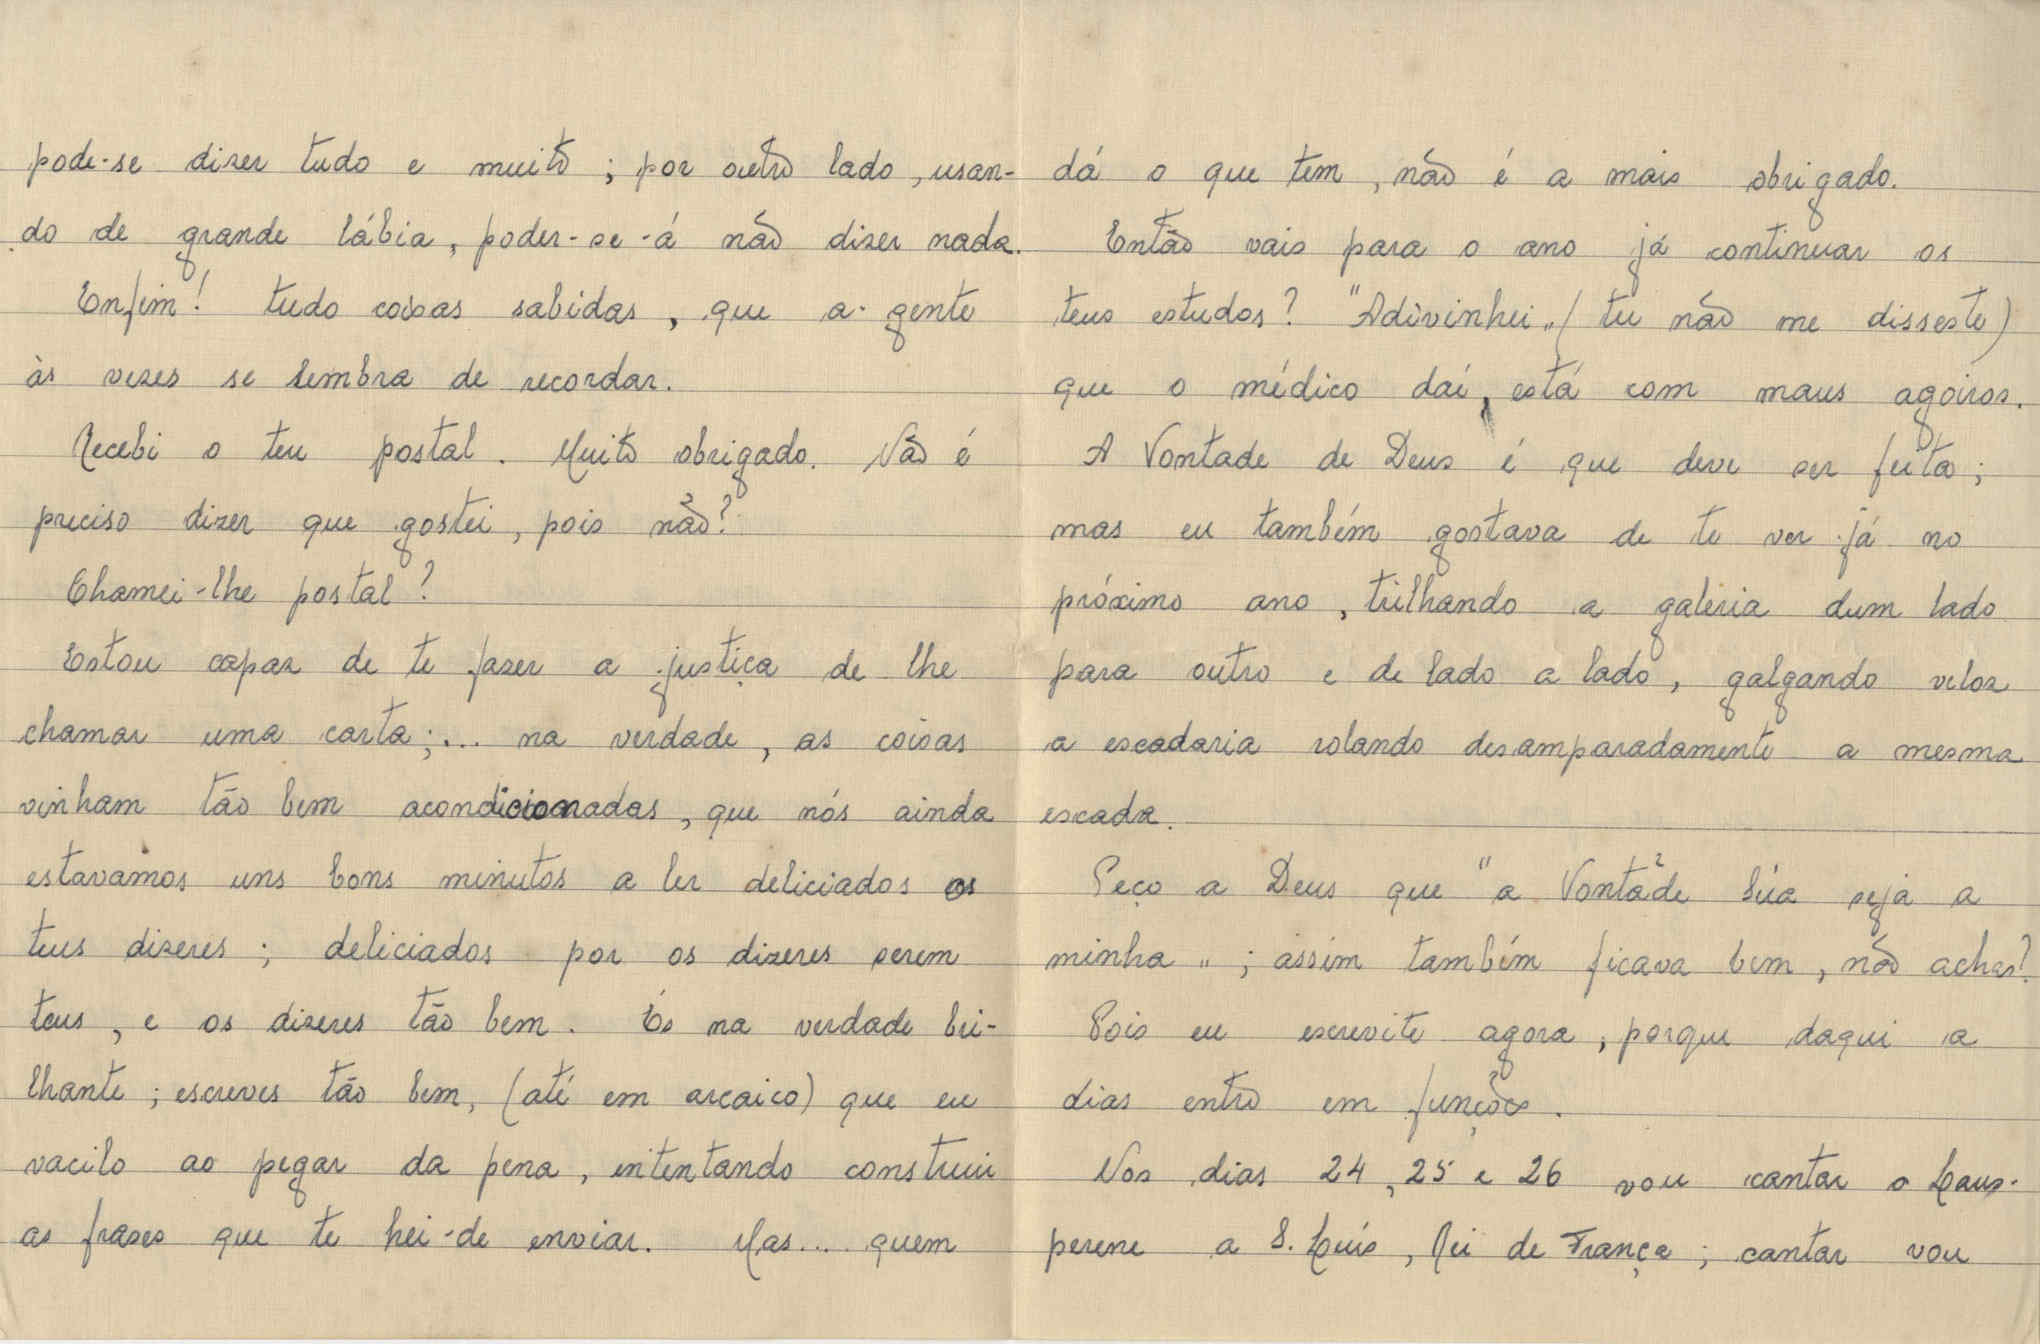 pode-se dizer tudo e muito ; por outro lado, usan-
do de grande lábia, poder-se-á não dizer nada.
Enfim! tudo coisas sabidas, que a gente
às vezes se lembra de recordar.
Recebi o teu postal. Muito obrigado. Não é
preciso dizer que gostei, pois não?
Chamei-lhe postal?
Estou capaz de te fazer a justiça de lhe
chamar uma carta;... na verdade, as coisas
vinham tão bem acondicionadas, que nós ainda
estavamos uns bons minutos a ler deliciados os
teus dizeres ; deliciados por os dizeres serem
teus, e os dizeres tão bem. És na verdade bri-
lhante ; escreves tão bem, (até em arcaico) que eu
vacilo ao pegar da pena, intentando construir
as frases que te hei-de enviar. Mas... quem
dá o que tem, não é a mais obrigado.
Então vais para o ano já continuar os
teus estudos? "Adivinhei„ (tu não me disseste)
que o médico daí, está com maus agoiros.
A Vontade de Deus é que deve ser feita ;
mas eu também gostava de te ver já no
próximo ano, trilhando a galeria dum lado
para outro e de lado a lado, galgando veloz
a escadaria rolando desamparadamente a mesma
escada.
Peço a Deus que "a Vontade Súa seja a
minha„ ; assim também ficava bem, não achas?
Pois eu escrevite agora, porque daqui a
dias entro em funções.
Nos dias 24, 25 e 26 vou cantar o Laus-
perene a S. Luís, Rei de França ; cantar vou